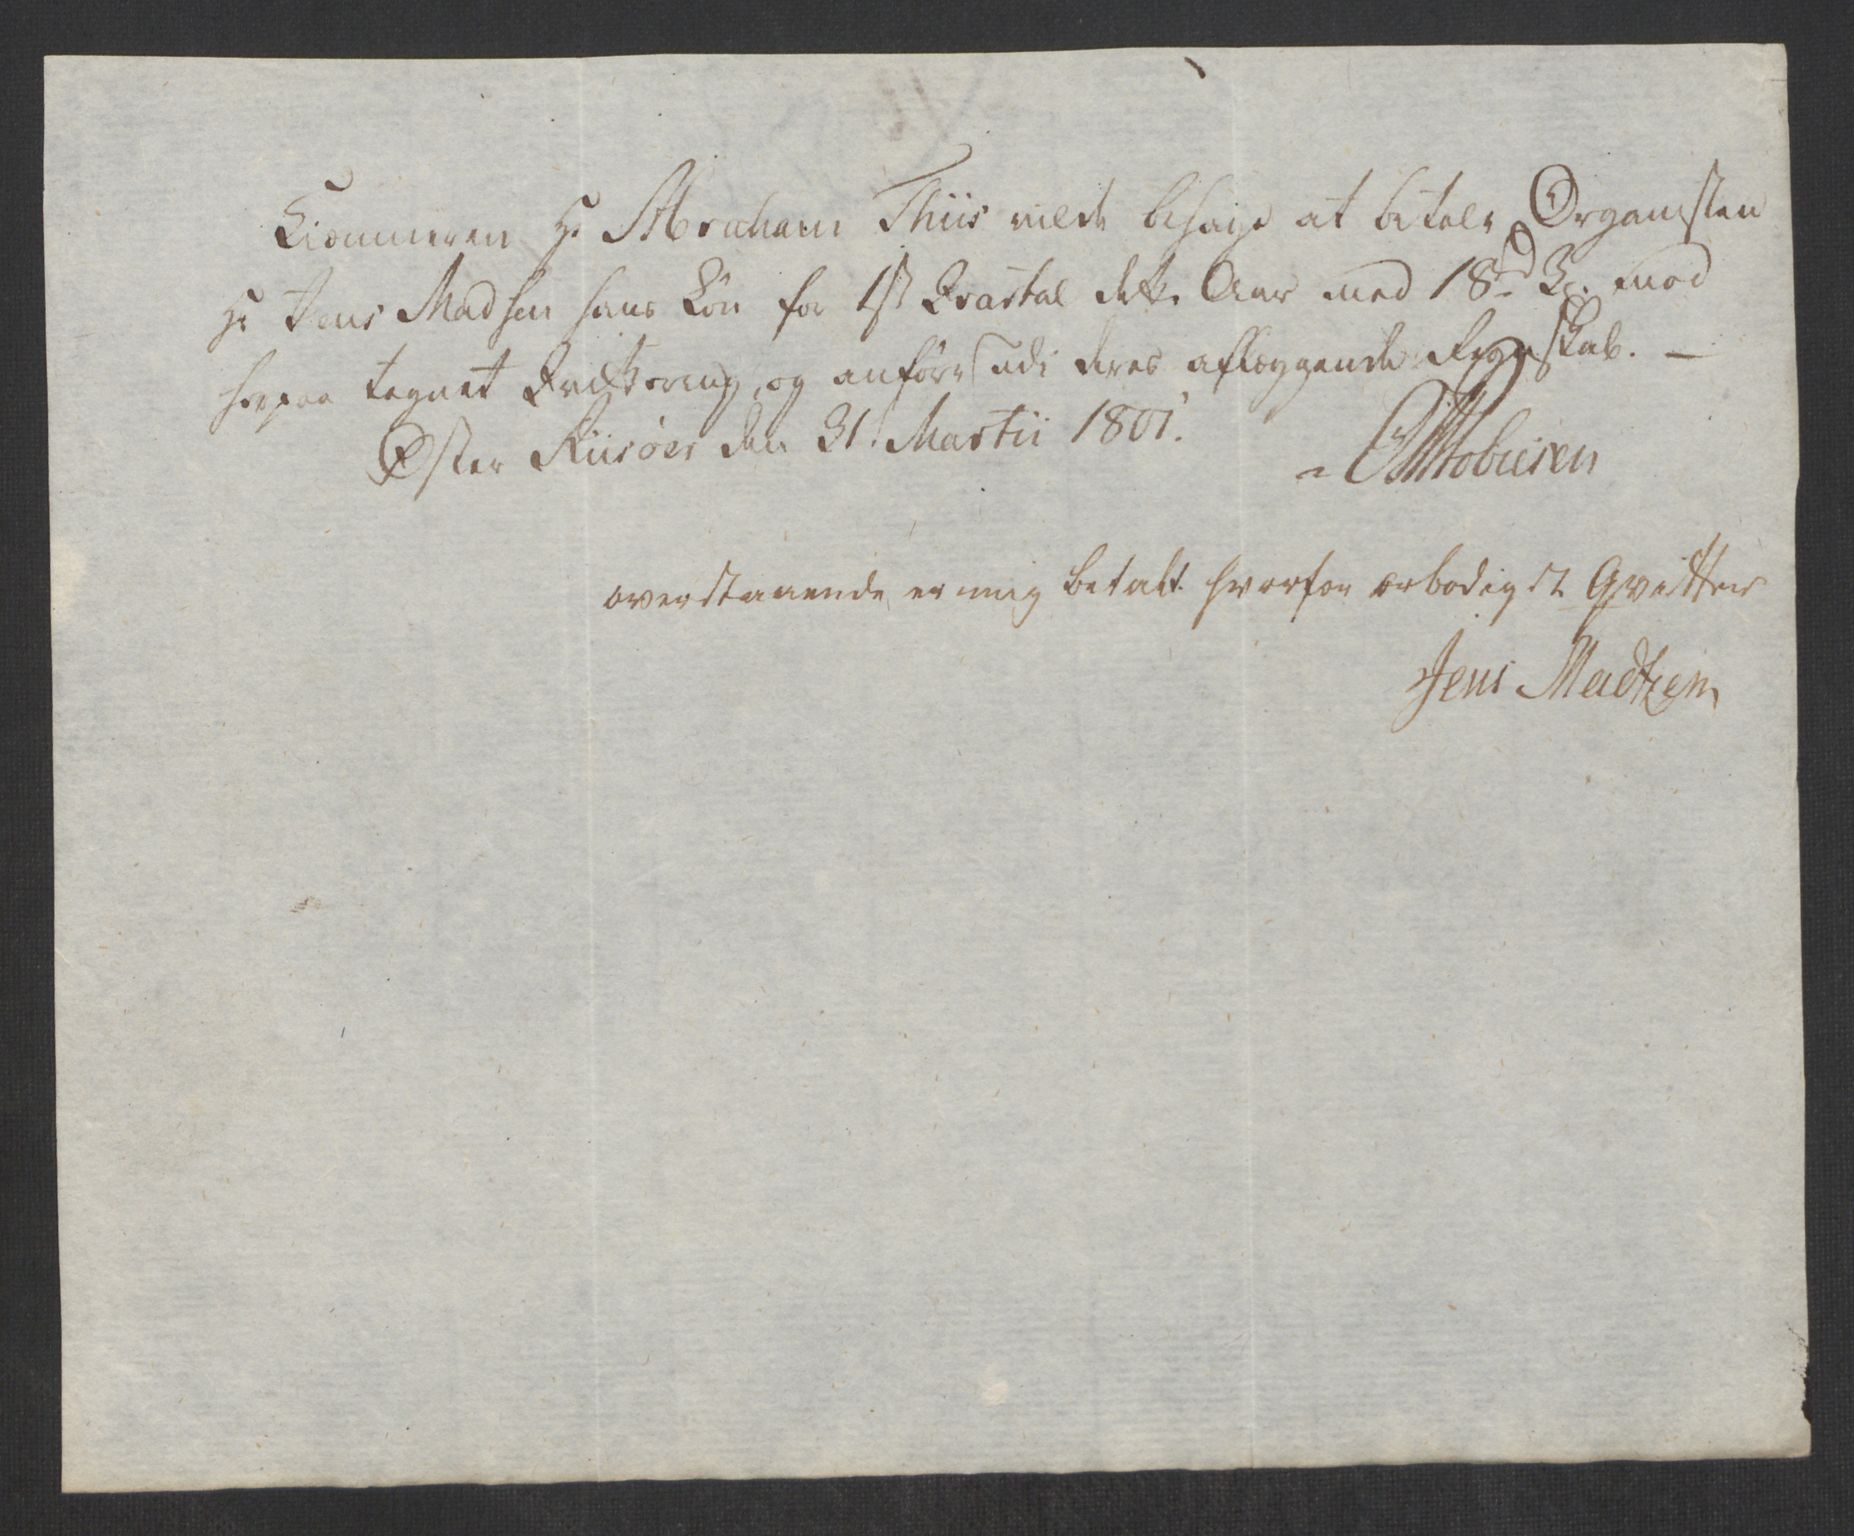 Kiæmneren Hr Abraham Thiis vilde behage at betale Organisten
Hr Jens Madsen hans Løn for 1st Qvartal dette Aar med 18 rd mod
herpaa tegnet Qvittering, og anføres udi deres aflæggende Regnskab. —
Øster Riisøer den 31. Martii 1801.
Tobiesen
overstaaende er mig betalt hvorfor ærbødigst Qvitteres
Jens Madtzen